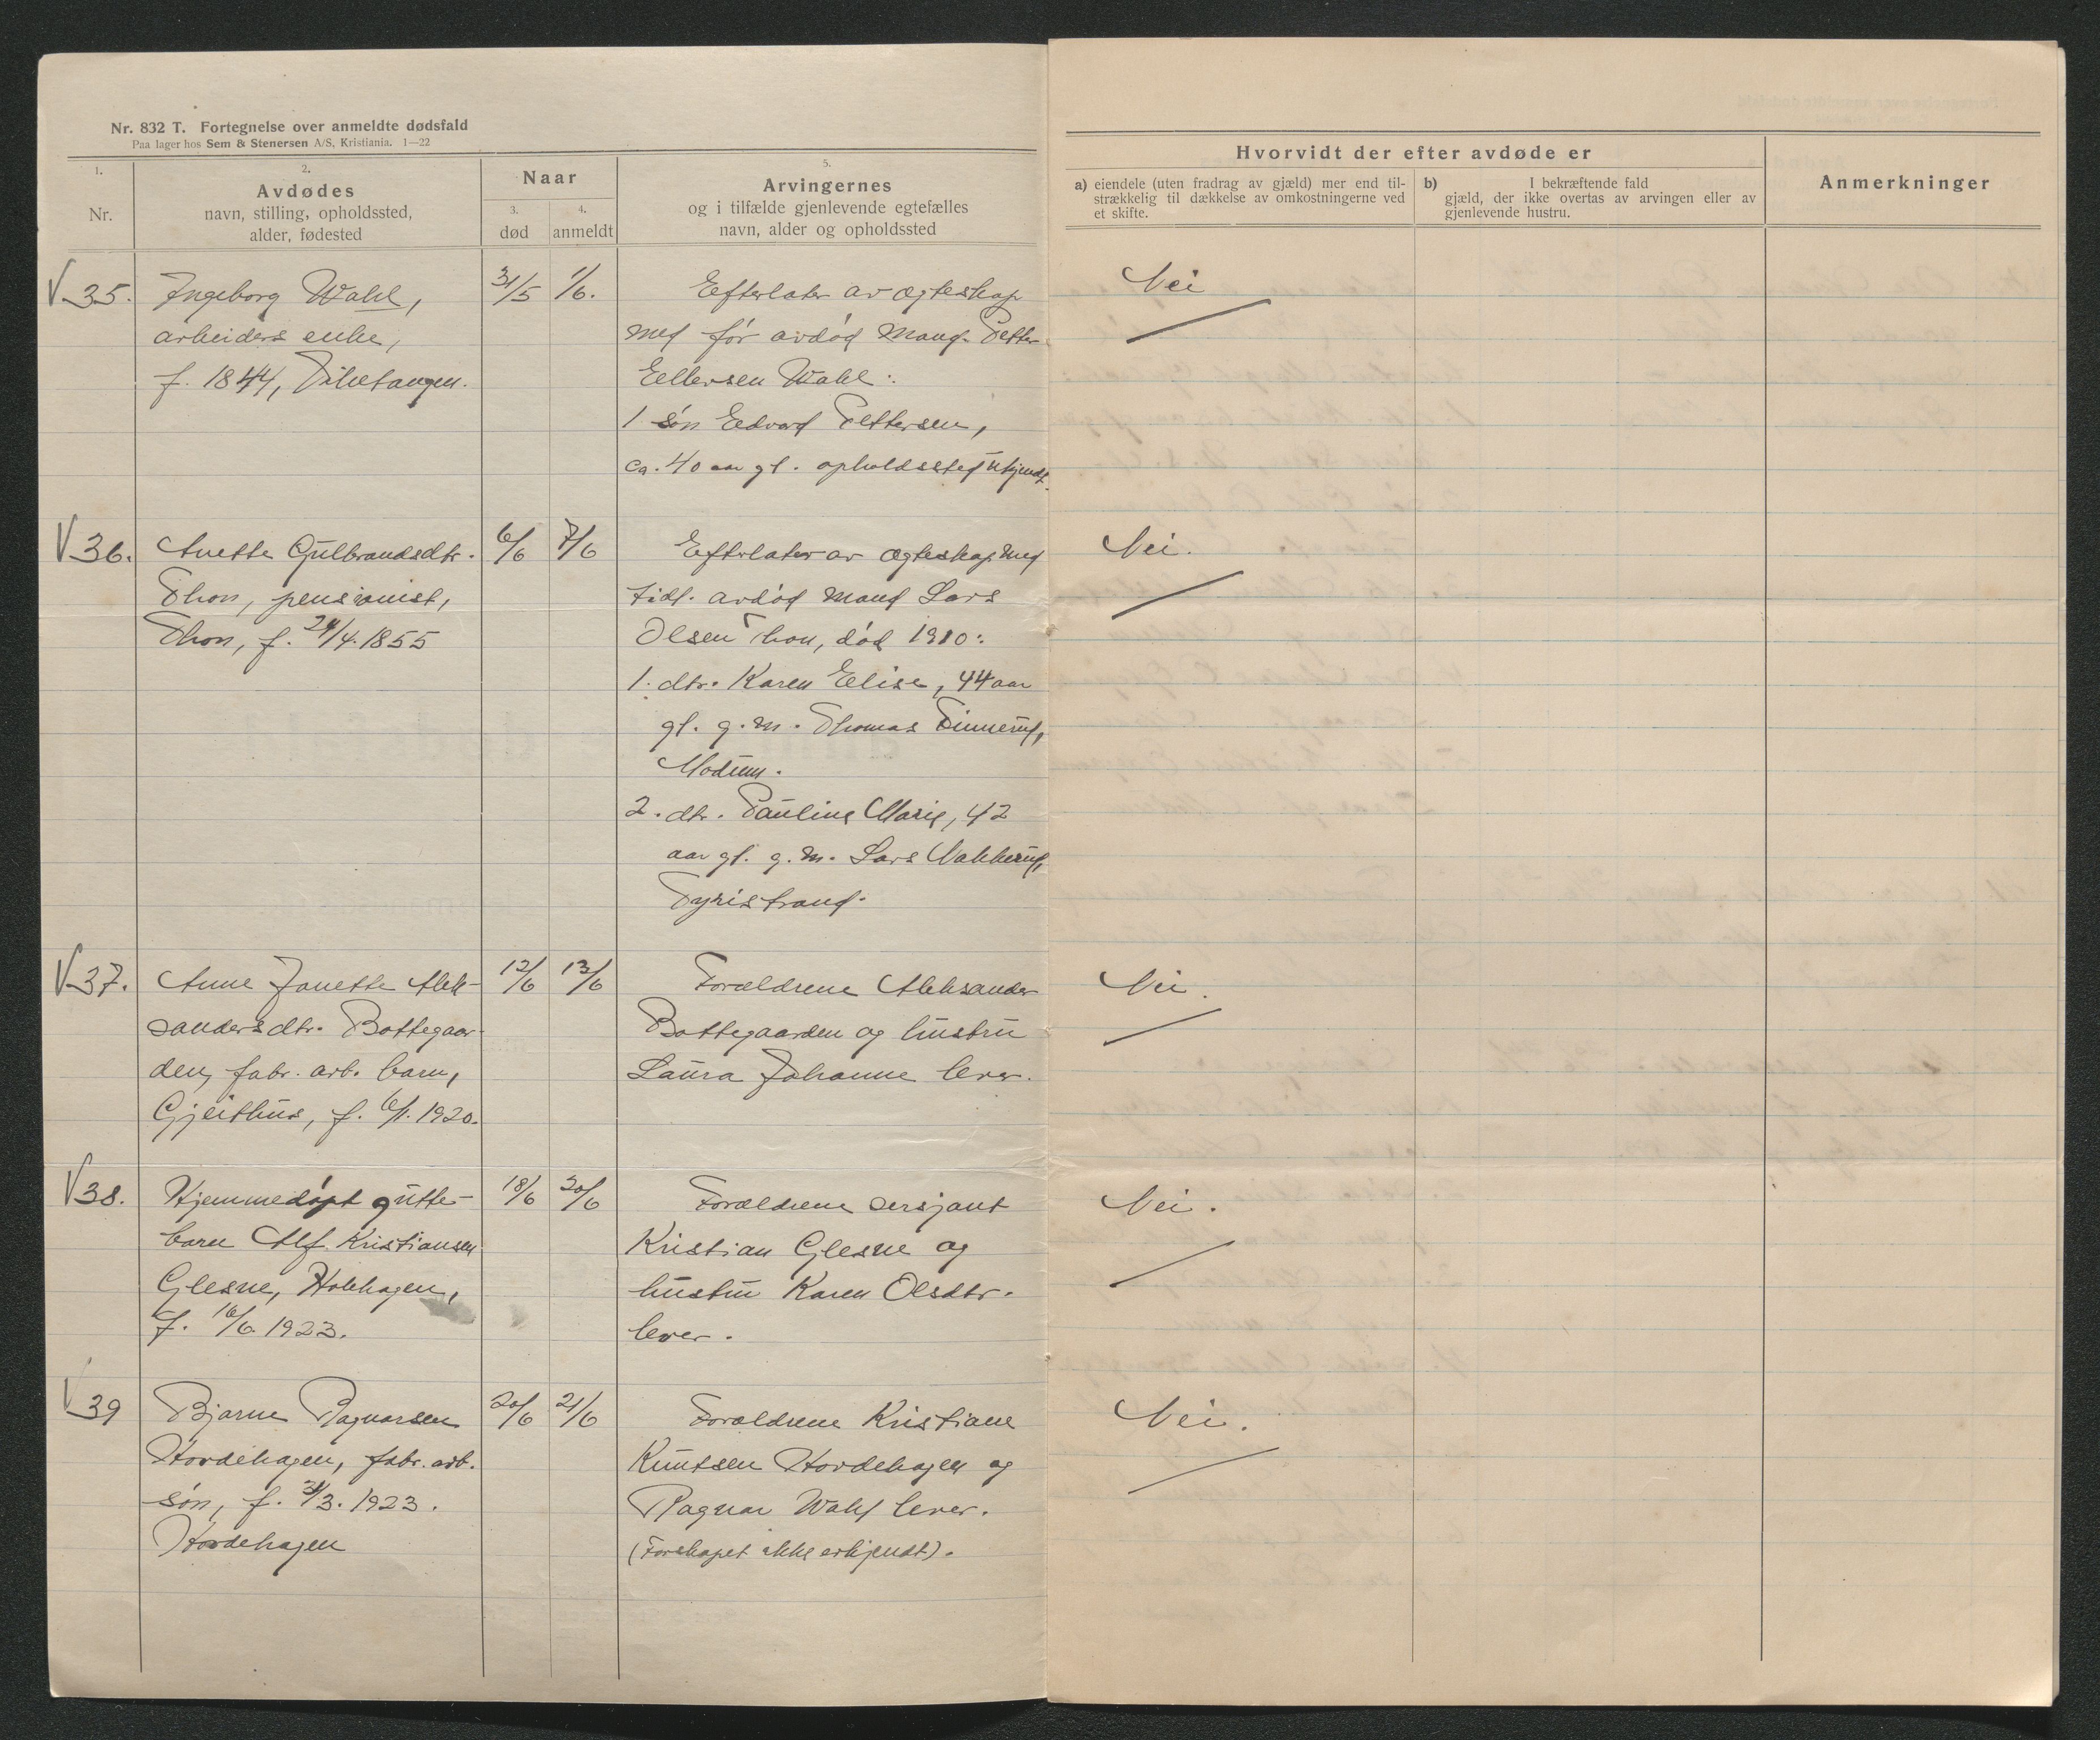 Nr. 832 T. Fortegnelse over anmeldte dødsfald
Paa lager hos Sem & Stenersen A/S, Kristiania. 1—22
1.
Nr.
2.
Avdødes
navn, stilling, opholdssted,
alder, fødested
Naar
3.
død
4.
anmeldt
5.
Arvingernes
og i tilfælde gjenlevende egtefælles
navn, alder og opholdssted
Hvorvidt der efter avdøde er
a) eiendele (uten fradrag av gjæld) mer end til-
strækkelig til dækkelse av omkostningerne ved
et skifte.
b) I bekræftende fald
gjæld, der ikke overtas av arvingen eller av
gjenlevende hustru.
Anmerkninger
V 35.
Ingeborg Wahl,
arbeiders enke,
f. 1844, Viketangen.
31/5
1/6.
Efterlater av ægteskap
med før avdød mand Petter
Ellersen Wahl:
1 søn Edvard Pettersen,
ca. 40 aar gl. opholdssted ukjendt.
Nei
V 36.
Anette Gulbrandsdtr.
Thon, pensionist,
Thon, f. 24/4.1855
6/6
7/6
Efterlater av ægteskap med
tidl. avdød mand Lars
Olsen Thon, død 1910:
1. dtr. Karen Elise, 44 aar
gl. g. m. Thomas Finnerud,
Modum.
2. dtr. Pauline Marie, 42
aar gl. g. m. Lars Nakkerud,
Tyristrand.
Nei.
V 37.
Anne Janette Alek-
sandersdtr. Bottegaar-
den, fabr. arb. barn,
Gjeithus, f. 6/1. 1920.
12/6
13/6
Forældrene Aleksander
Bottegaarden og hustru
Laura Johanne lever.
Nei.
V 38.
Hjemmedøpt gutte-
barn Alf Kristiansen
Glesne, Holehagen,
f. 16/6 1923.
18/6
20/6
Forældrene sersjant
Kristian Glesne og
hustru Karen Olsdtr.
lever.
Nei.
V 39
Bjarne Ragnarsen
Hovdehagen, fabr. arb.
søn, f. /3. 1923.
Hovdehagen
20/6
21/6
Forældrene Kristiane
Knutsen Hovdehagen og
Ragnar Wahl lever.
(Farskapet ikke erkjendt).
Nei.